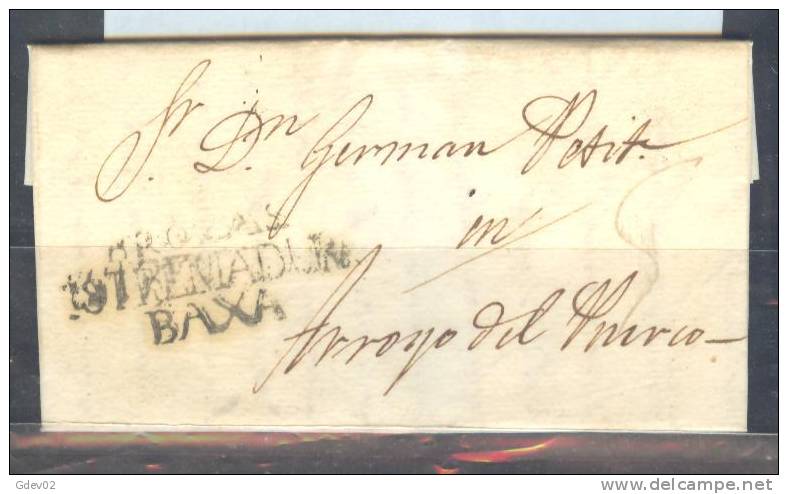 Sr. Dn. German Petit.
en
Arroyo del Puerco
ESTREMADURA
BAXA
Gdev02
www.delcampe.net